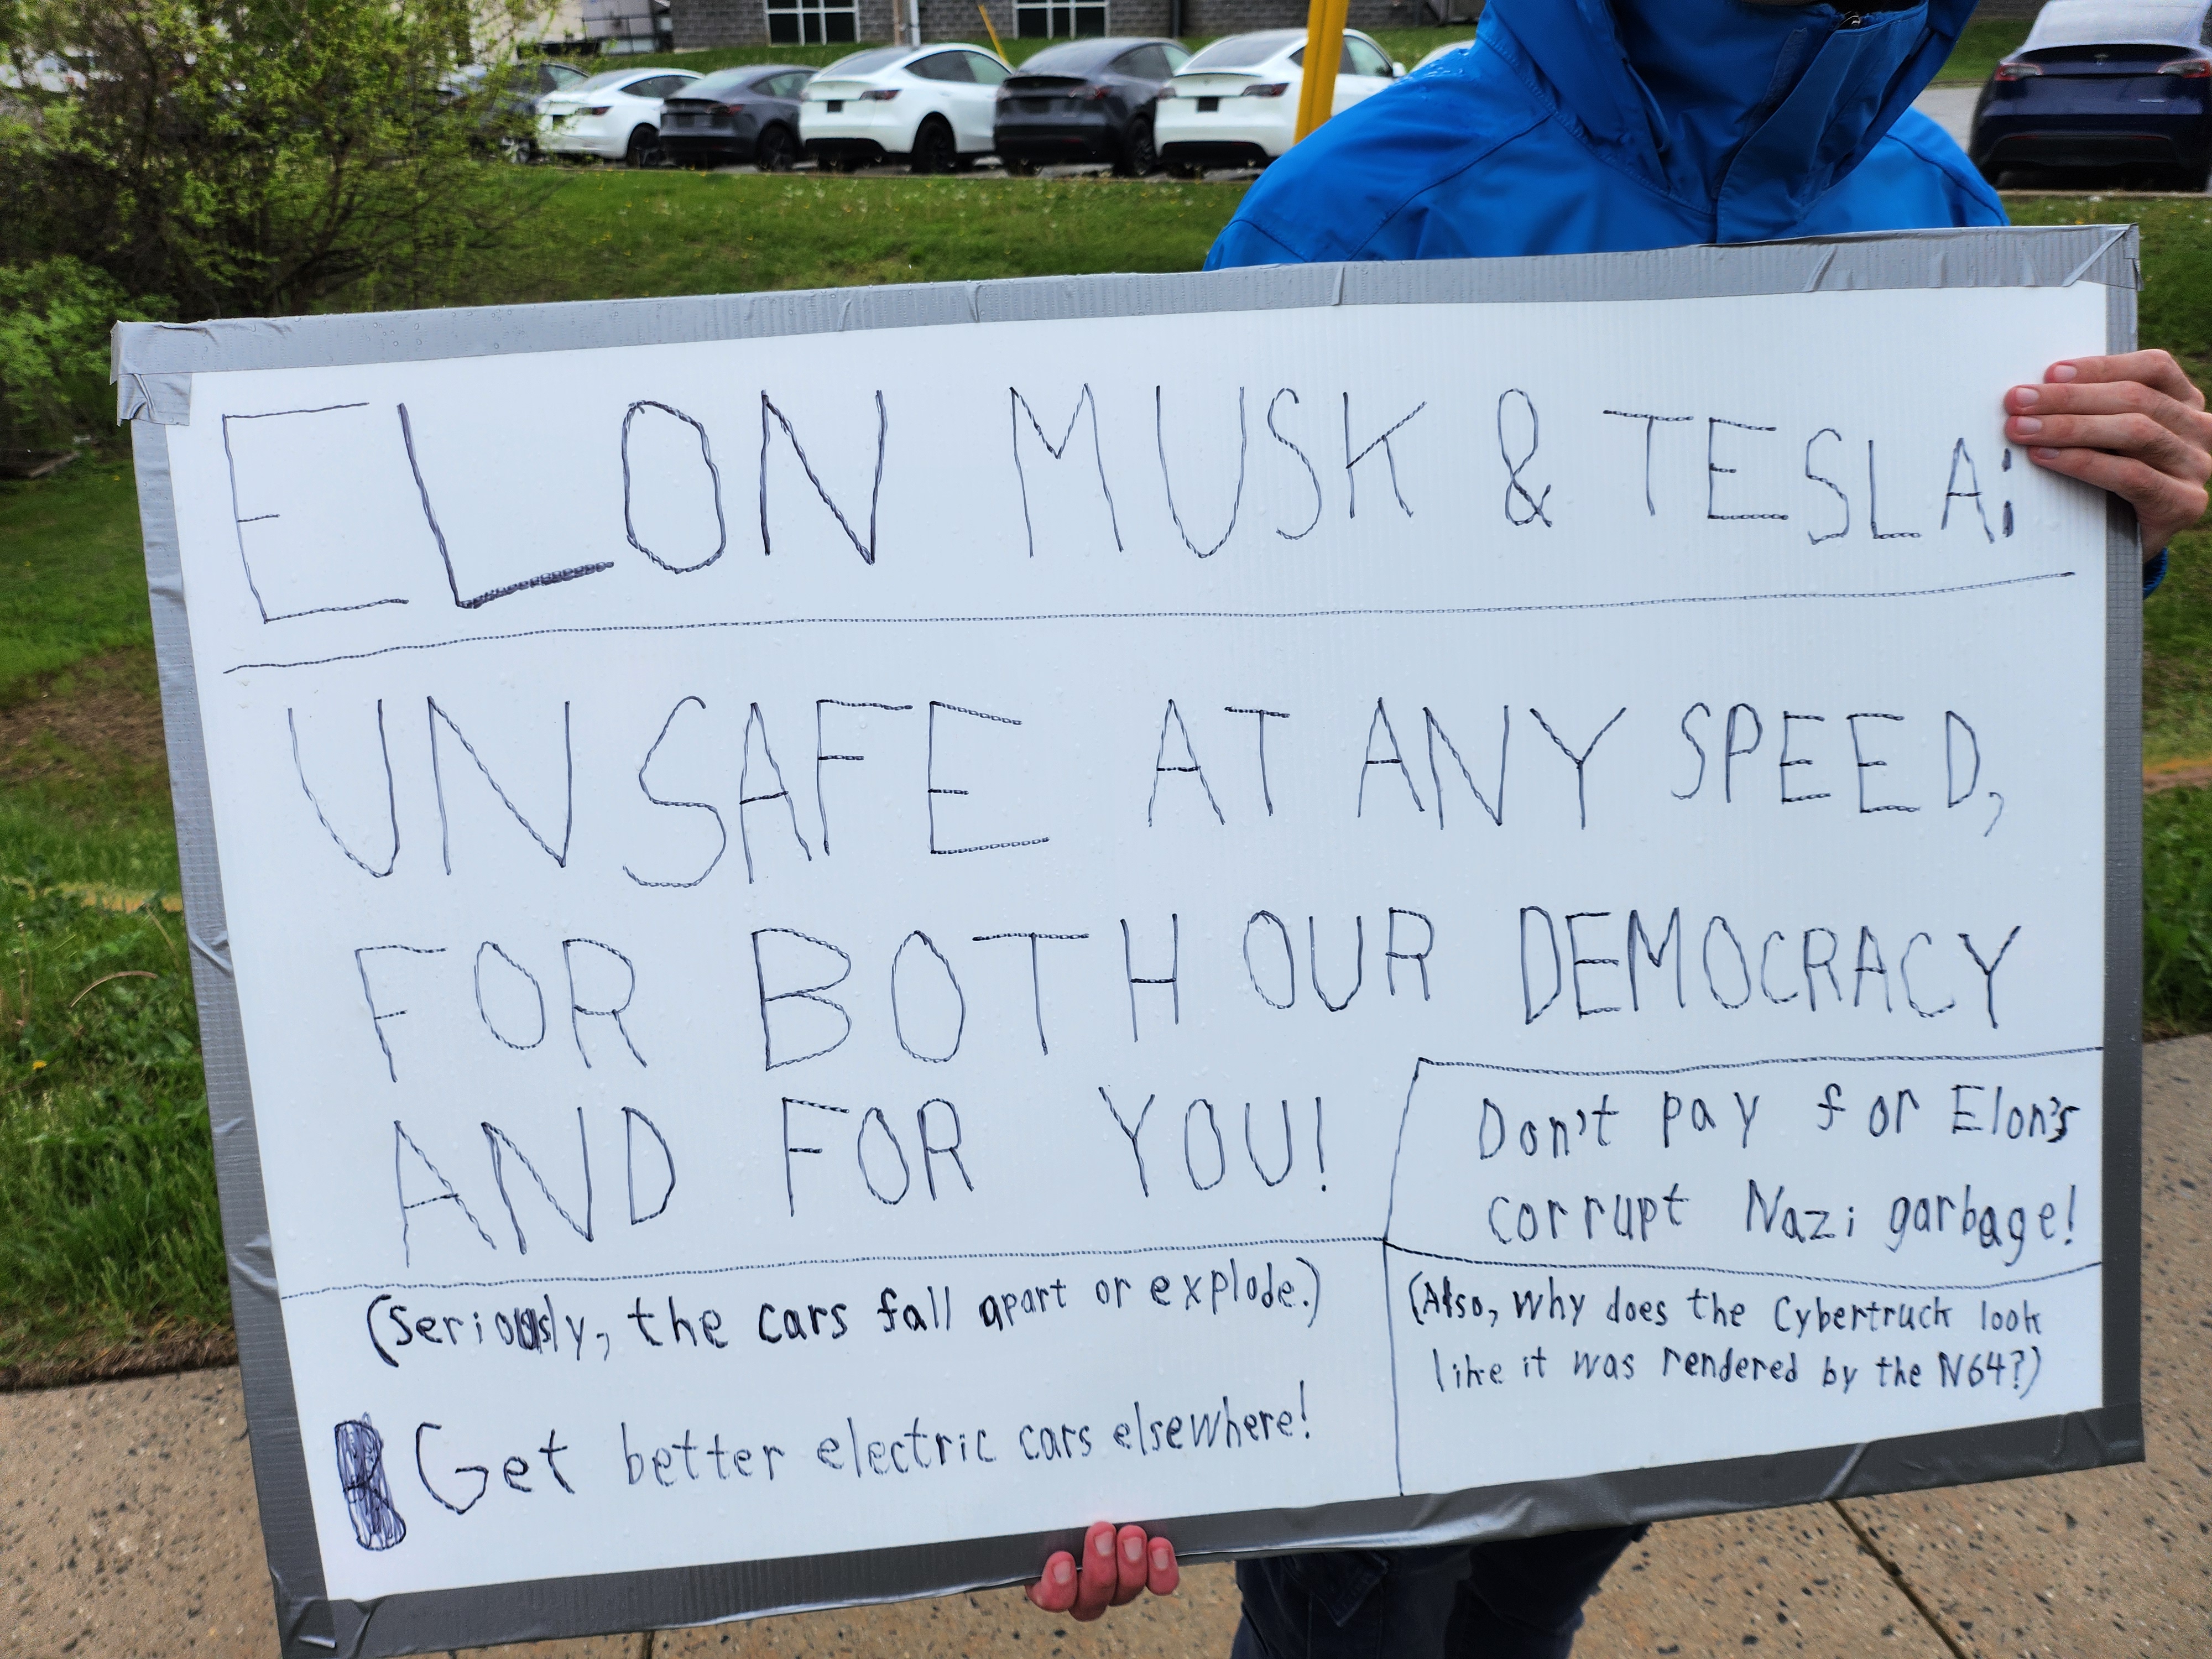 ELON MUSK & TESLA:
UNSAFE AT ANY SPEED,
FOR BOTH OUR DEMOCRACY
AND FOR YOU!
Don't pay for Elon's
corrupt Nazi garbage!
(Seriously, the cars fall apart or explode.)
Get better electric cars elsewhere!
(Also, why does the Cybertruck look
like it was rendered by the N64?)